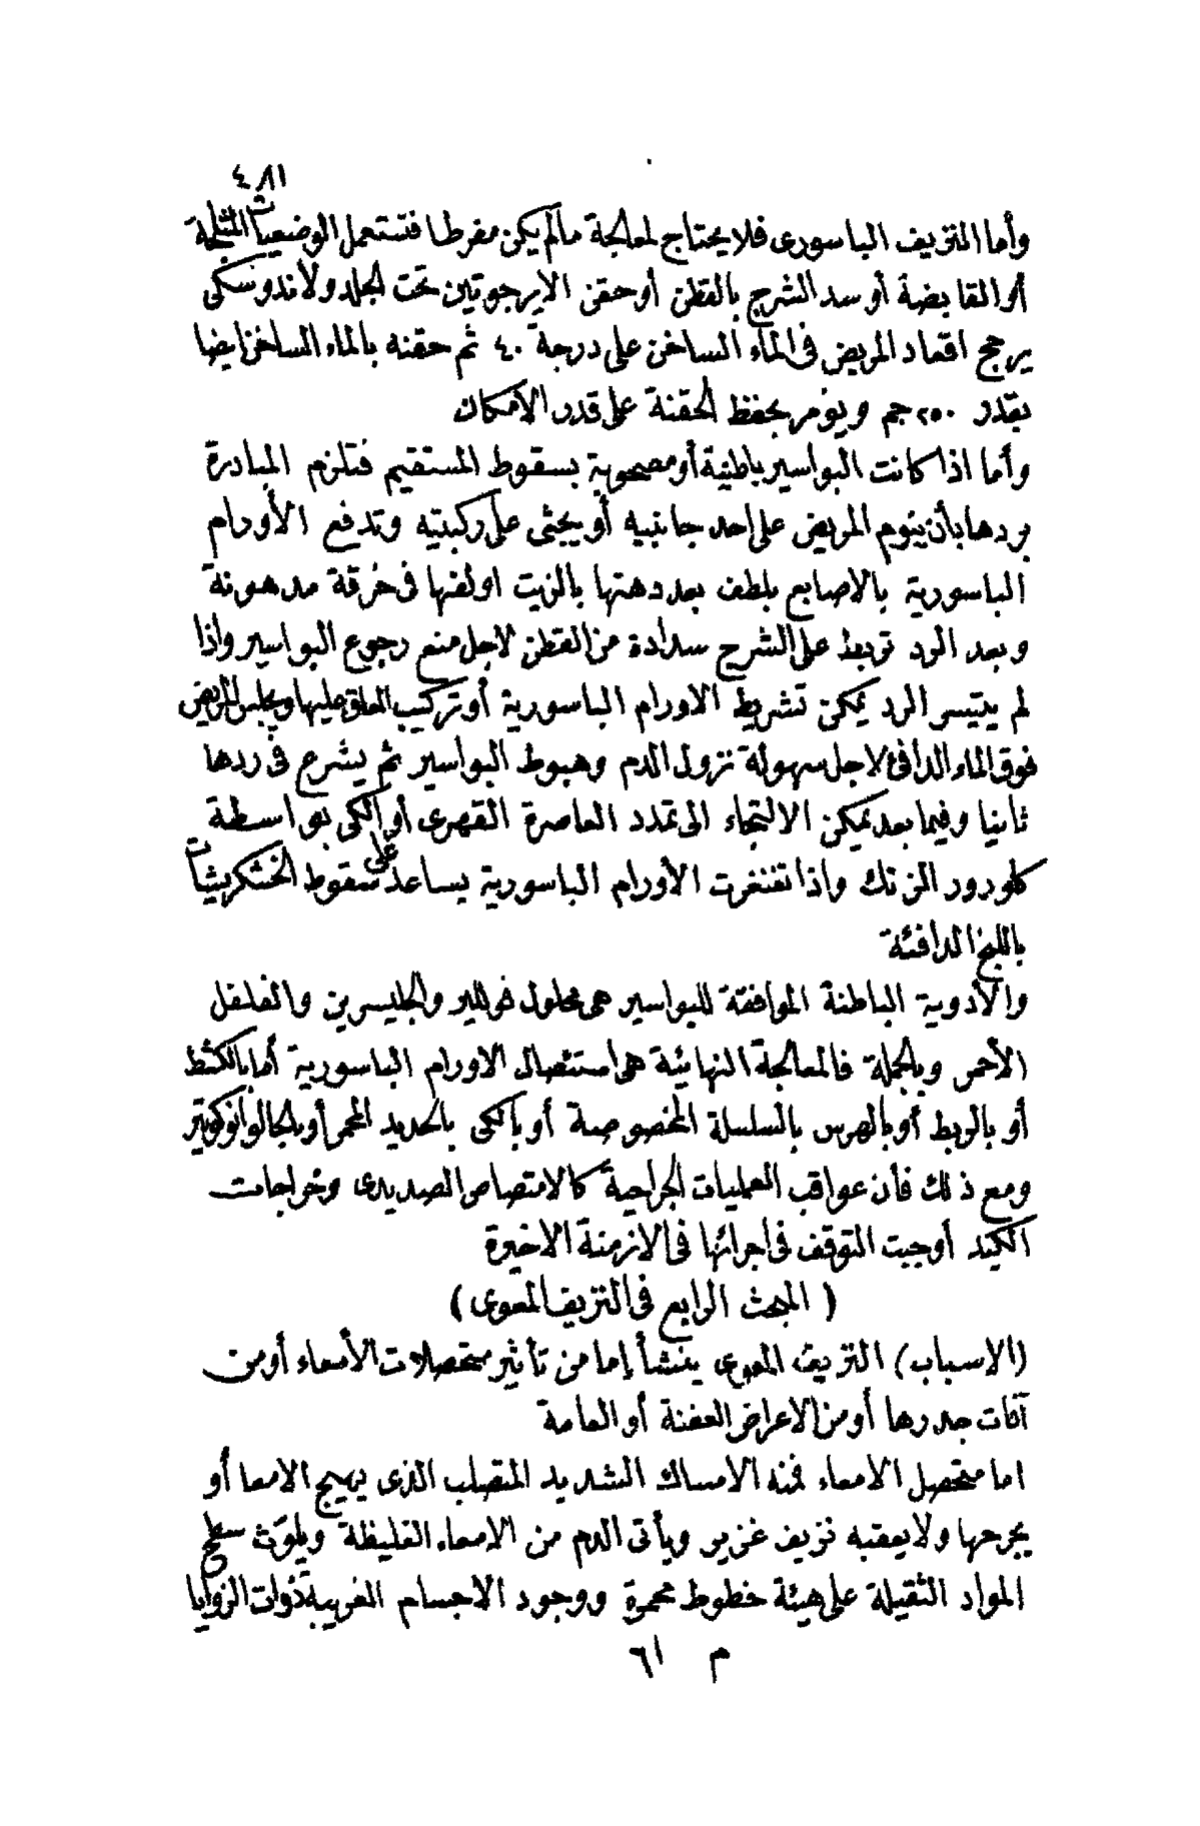 ٤٨١
وأما النزيف الباسورى فلا يحتاج لمعالجة مالم يكن مفرطا فتستعمل الوضعيات المثلجة
أو القابضة أو سد الشرج بالقطن أو حقن الايرجوتين تحت الجلد ولاندوسكى
يرجح اقعاد المريض فى الماء الساخن على درجة ٤٠ ثم حقنه بالماء الساخن ايضا
بقدر ٢٥٠ جم ويؤمر بحفظ الحقنة على قدر الامكان
وأما اذا كانت البواسير باطنية أو مصحوبة بسقوط المستقيم فتلزم المبادرة
بردها بأن ينوم المريض على احد جانبيه أو يجثى على ركبتيه وتدفع الأورام
الباسورية بالاصابع بلطف بعد دهنها بالزيت او لفها فى خرقة مدهونة
وبعد الرد تربط على الشرج سدادة من القطن لاجل منع رجوع البواسير واذا
لم يتيسر الرد يمكن تشريط الاورام الباسورية أو تركيب العلق عليها ويجلس المريض
فوق الماء الدافئ لاجل سهولة نزول الدم وهبوط البواسير ثم يشرع فى ردها
ثانيا وفيما بعد يمكن الالتجاء الى تمدد العاصرة القهرى أو الكى بواسطة
كلورور الزنك واذا تغنغرت الأورام الباسورية يساعد على سقوط الخشكريشات
باللبخ الدافئة
والأدوية الباطنة الموافقة للبواسير هى محلول فوللير والجليسرين والفلفل
الأحمر وبالجملة فالمعالجة النهائية هى استئصال الاورام الباسورية أما بالكشط
أو بالربط أو بالهرس بالسلسلة المخصوصة أو بالكى بالحديد المحمر أو بالجالوانوكوتير
ومع ذلك فأن عواقب العمليات الجراحية كالامتصاص الصديدى وخراجات
الكبد أوجبت التوقف فى اجرائها فى الازمنة الاخيرة
( المبحث الرابع فى النزيف المعوى )
(الاسباب) النزيف المعوى ينشأ إما من تأثير متحصلات الأمعاء أو من
آفات جدرها أو من الاعراض العفنة أو العامة
اما متحصل الامعاء فمنه الامساك الشديد المتصلب الذى يهيج الامعا أو
يجرحها ولا يعقبه نزيف غزير ويأتى الدم من الامعاء الغليظة ويلوّث سطح
المواد الثقيلة على هيئة خطوط محمرة ووجود الاجسام الغريبة ذوات الزوايا
م ٦١